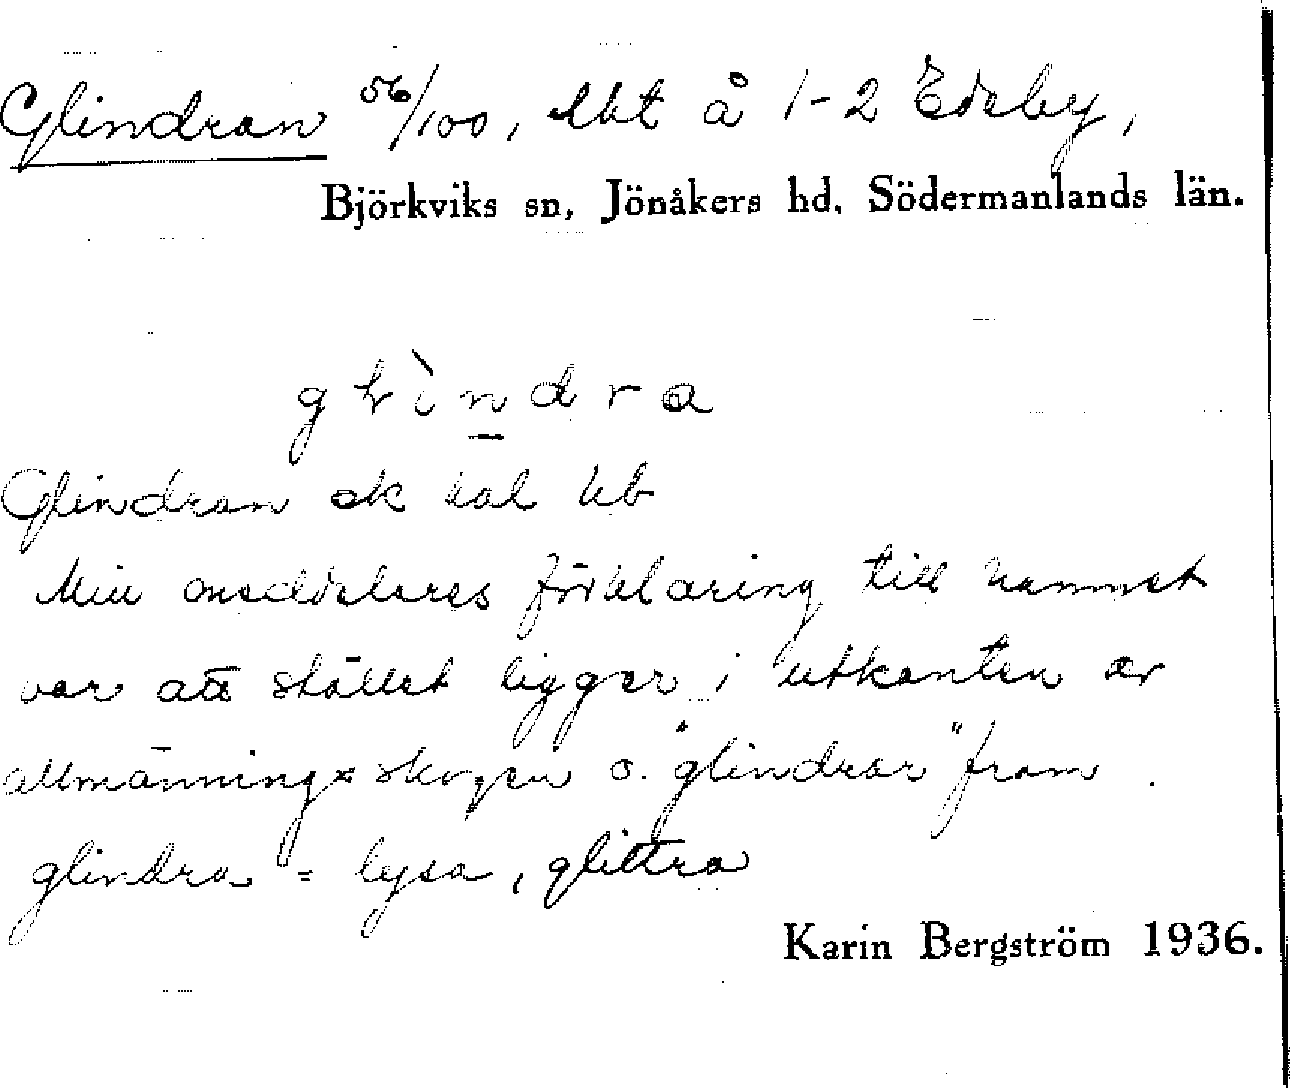 Glindran 56/100, lht å 1-2 Edeby,
Björkviks sn, Jönåkers hd, Södermanlands län.
glìndra
Glindran ek kal
Min meddelares förklaring till namnet
var att stället ligger i utkanten av
allmänningsskogen o. "glindrar" fram.
glindra = lysa, glittra
Karin Bergström 1936.